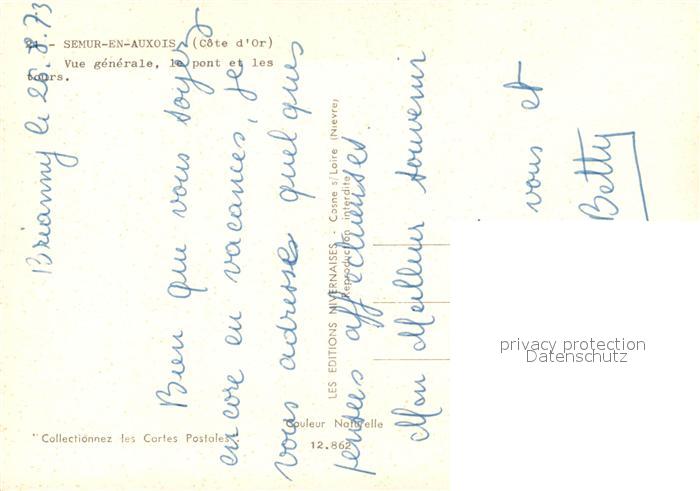 4 - SEMUR-EN-AUXOIS (Côte d'Or)
Vue générale, le pont et les
tours.
Brianny le 25.8.73
Bien que vous soyez
encore en vacances, je
vous adresse quelques
pensées affectueuses
Mon Meilleur souvenir
vous et
Betty
LES EDITIONS NIVERNAISES - Cosne s/Loire (Nievre)
Reproduction interdite
"Collectionnez les Cartes Postales"
Couleur Naturelle
12.862
privacy protection
Datenschutz